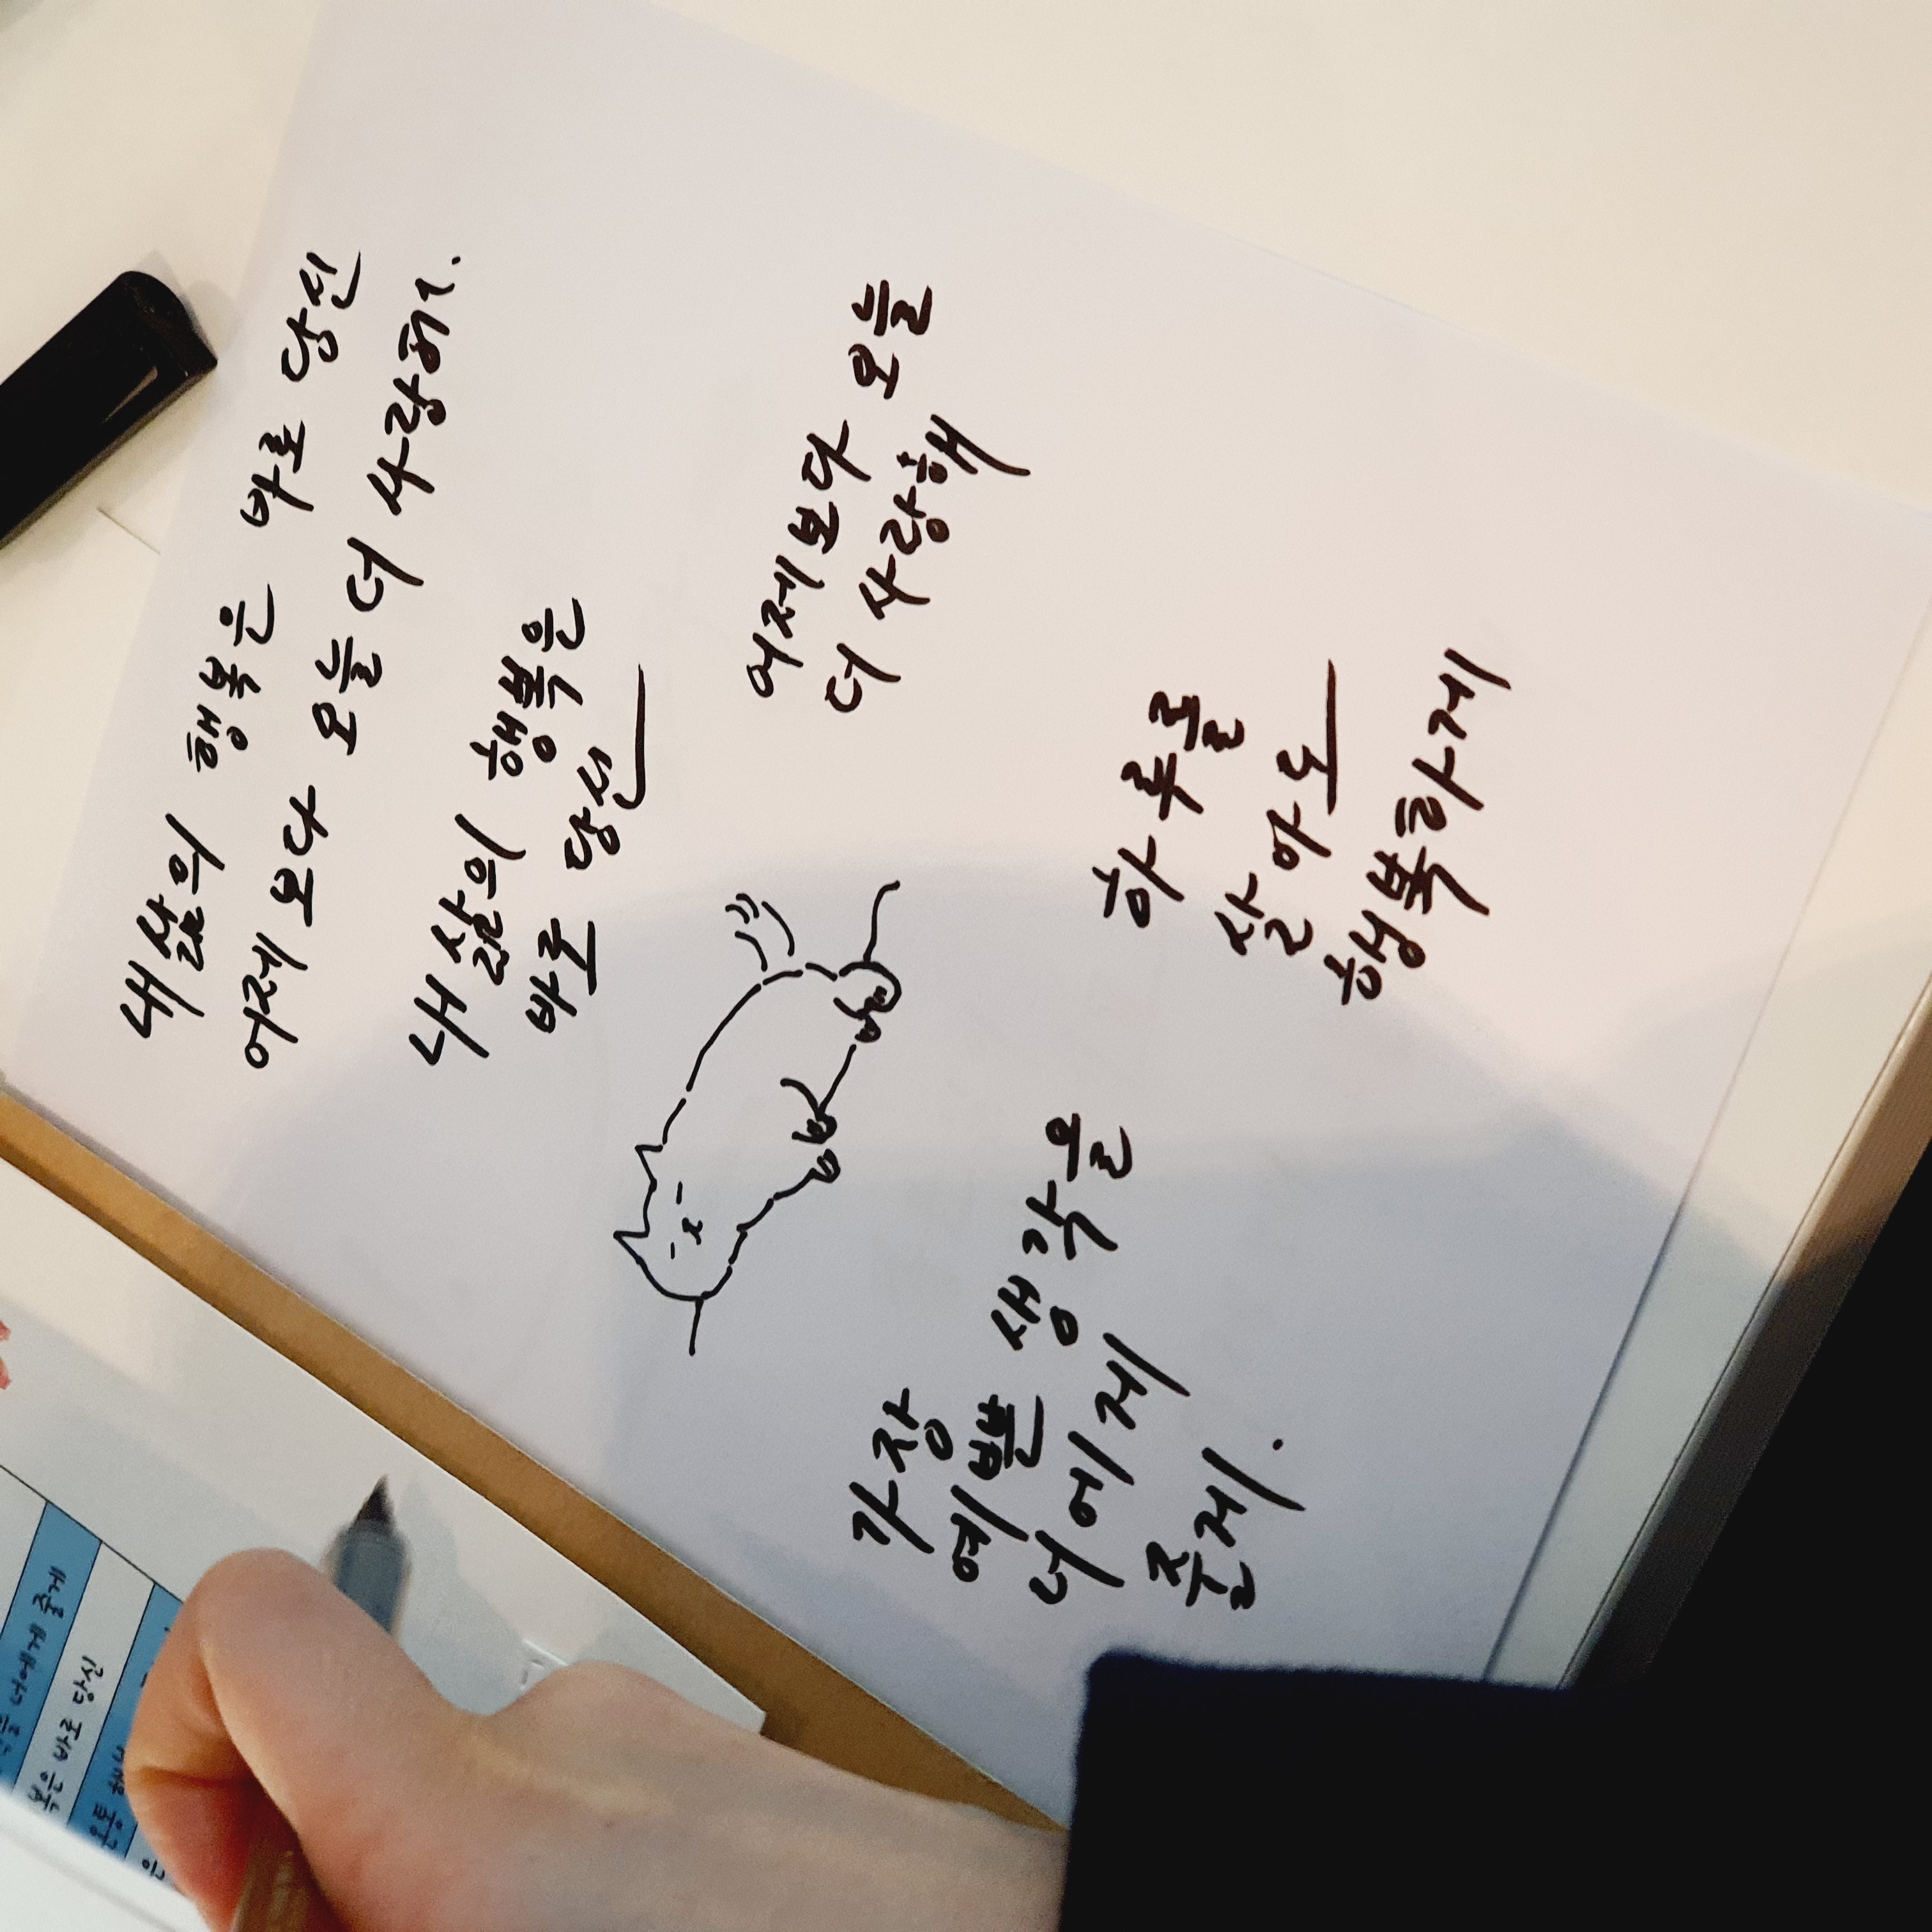 내 삶의 행복은 바로 당신
어제보다 오늘 더 사랑해.
내 삶의 행복은
바로 당신
어제보다 오늘
더 사랑해
하루를
살아도
행복하게
가장
예쁜 생각을
너에게
줄게.
너에게 줄게
복은 바로 당신